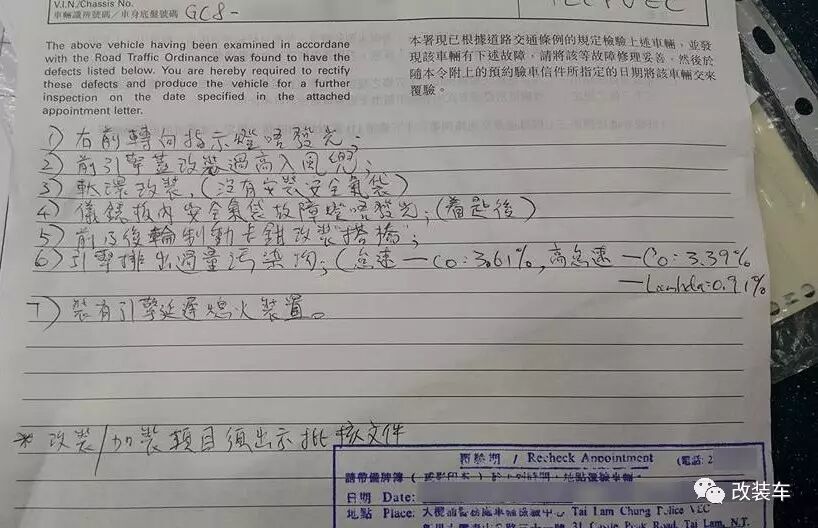 V.I.N./Chassis No.
車輛識別號碼／車身底盤號碼 GC8-
The above vehicle having been examined in accordance
with the Road Traffic Ordinance was found to have the
defects listed below. You are hereby required to rectify
these defects and produce the vehicle for a further
inspection on the date specified in the attached
appointment letter.
本署現已根據道路交通條例的規定檢驗上述車輛，並發
現該車輛有下述故障，請將該等故障修理妥善，然後於
隨本令附上的預約驗車信件所指定的日期將該車輛交來
覆驗。
1) 右前轉向指示燈唔發光；
2) 前引擎蓋改裝過高入風兜；
3) 軚環改裝，(沒有安裝安全氣袋)
4) 儀錶板內安全氣袋故障燈唔發光；(着匙後)
5) 前及後輪制動卡鉗改裝"搭橋"；
6) 引擎排出過量污染物；(怠速 — CO: 3.61%, 高怠速 — CO: 3.39%
— Lambda=0.91%
7) 裝有引擎延遲熄火裝置。
* 改裝/加裝項目須出示批核文件
覆驗期 / Recheck Appointment (電話: 2
請帶備牌簿
日期 Date:
地點 Place: Tai Lam Chung Police VEC
Tai Lam, N.T.
改装车